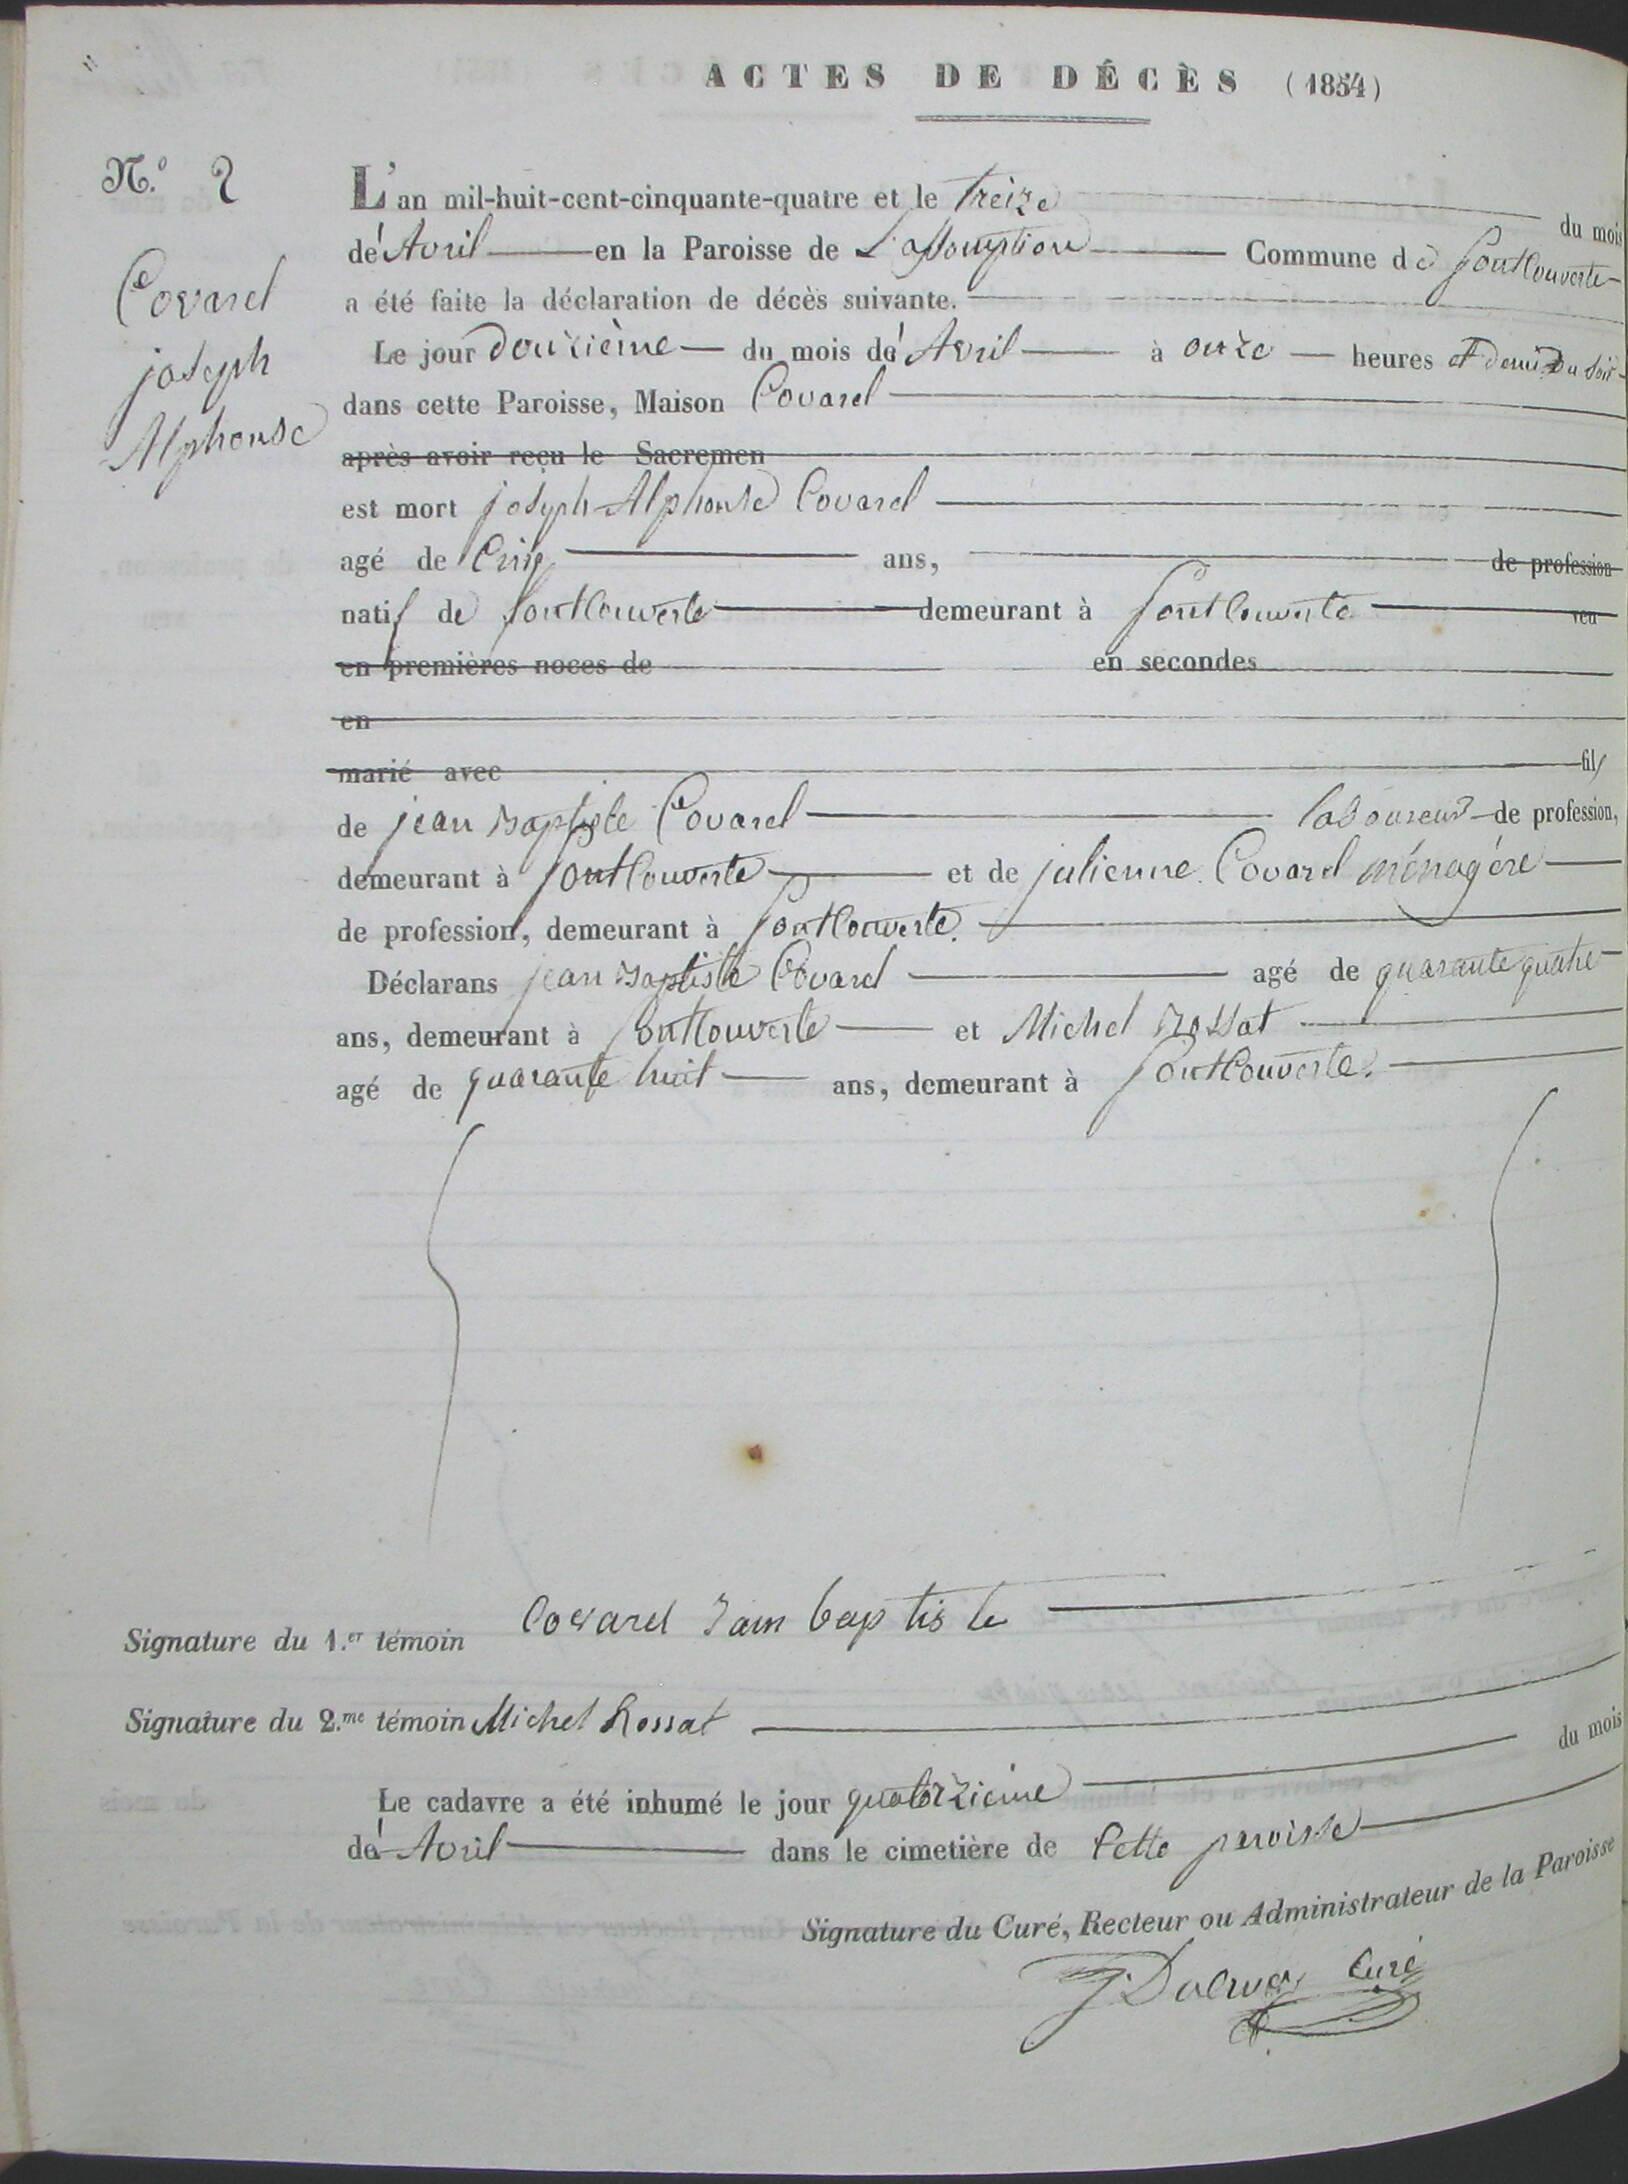 ACTES DE DÉCÈS (1854)
N.º 2
Covarel
joseph
Alphonse
L'an mil-huit-cent-cinquante-quatre et le treize du mois
de Avril en la Paroisse de L'assomption Commune de fontcouverte
a été faite la déclaration de décès suivante.
Le jour douzième du mois de Avril à onze heures et demi du soir
dans cette Paroisse, Maison Covarel
après avoir reçu le Sacremen
est mort joseph Alphonse Covarel
agé de Cinq ans, de profession
natif de fontcouverte demeurant à fontcouverte veu
en premières noces de en secondes
en
marié avec fils
de jean Baptiste Covarel laboureur de profession,
demeurant à fontcouverte et de julienne Covarel ménagére
de profession, demeurant à fontcouverte.
Déclarans jean Baptiste Covarel agé de quarante quatre
ans, demeurant à fontcouverte et Michel Rossat
agé de quarante huit ans, demeurant à fontcouverte.
Signature du 1.er témoin Covarel Jam baptiste
Signature du 2.me témoin Michel Rossat
Le cadavre a été inhumé le jour quatorzieme du mois
de Avril dans le cimetière de Cette paroisse
Signature du Curé, Recteur ou Administrateur de la Paroisse
Curé